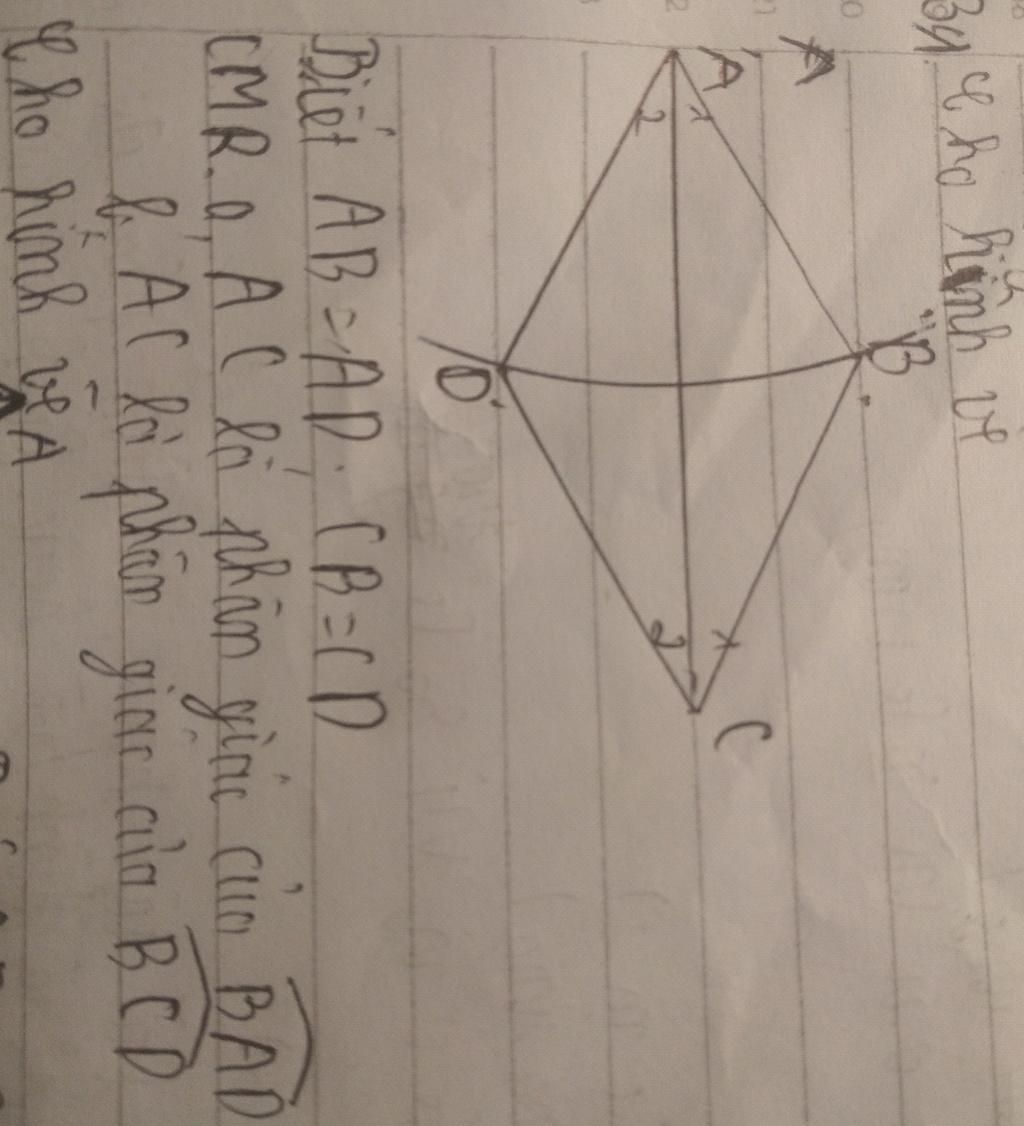 B4. Cho hình vẽ
A
B
1
2
1
2
C
D
Biết AB = AD. CB = CD
CMR. a, AC là phân giác của BAD
b, AC là phân giác của BCD
Cho hình vẽ
A